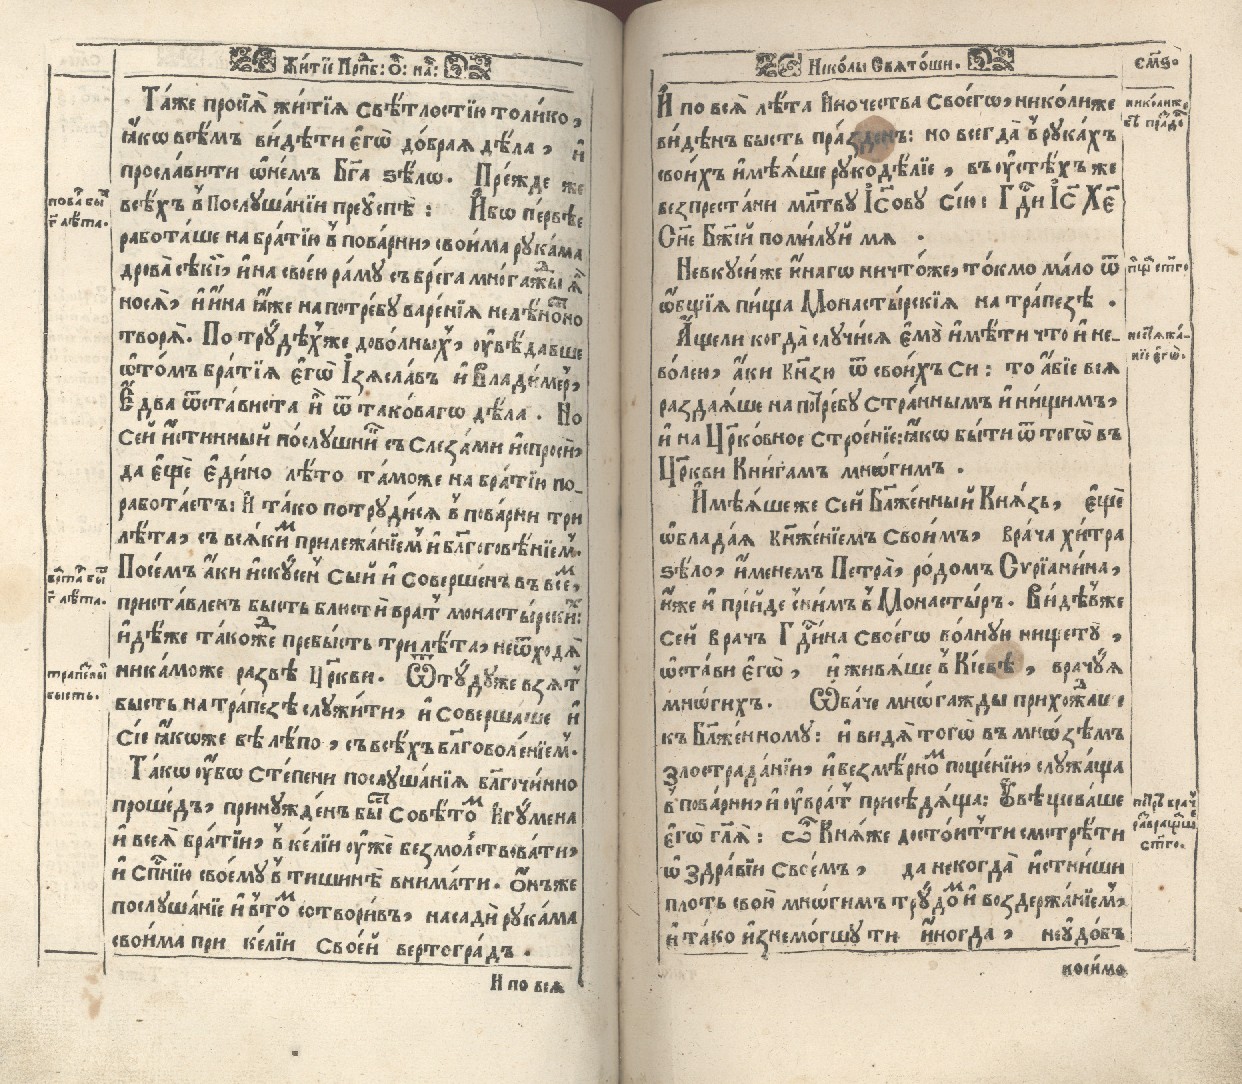 Житїе Прпⷣб: Ѿ: на́:
Та́же просїѧ̀ жи́тїѧ свѣ́тлостїю толи́ко,
ꙗ҆́кѡ всѣ́мъ ви́дѣти є҆гѡ̀ до́браѧ дѣ́ла, и҆
просла́вити ѡ҆не́мъ Бг҃а ѕѣ́лѡ. Пре́жде же
всѣ́хъ в̾ Послꙋша́нїи преꙋспѣ̀: И҆́бо пе́рвѣе
работа́ше на бра́тїю в̾ пова́рни, свои́ма рꙋка́ма
дрова̀ сѣкі̀, и҆ на свое́ю ра́мꙋ съ бре́га мно́гажⷣы ѧ҆̀
носѧ̀, и҆ и҆́на ꙗ҆́же на потре́бꙋ варе́нїѧ нелѣ́ностⷩо
творѧ̀. По трꙋдѣ́х же дово́лных, ᲂу҆вѣ́давше
ѡ҆то́мъ бра́тїѧ є҆гѡ̀ І҆зѧсла́въ и҆ Влади́мер,
Є҆два̀ ѿста́виста и҆̀ ѿ тако́вагѡ дѣ́ла. Но
Сей и҆́стинный по́слꙋшниⷦ съ слеза́ми и҆спросѝ,
да є҆щѐ є҆ди́но лѣ́то та́може на бра́тїи по-
рабо́таетъ: И҆ та́ко потрꙋди́сѧ в̾ пова́рни три
лѣ́та, съ всѧ́киⷨ прилежа́нїем и҆ благⷢогове́нїем.
Посе́мъ а҆́ки и҆скꙋ́сен сый и҆ соверше́н въ всеⷨ,
приста́вленъ бысть блюстѝ врат̀ монасты́рскиⷯ:
и҆дѣ́же та́коже пребы́сть три лѣ́та, неѿходѧ̀
ника́може ра́звѣ Цр҃кви. Ѿтꙋ́дꙋже взѧ́т
бысть на тра́пезѣ слꙋжи́ти, и҆ соверша́ше и҆
Сїѐ ꙗ҆́коже ве лѣ́по, съ всѣ́хъ благⷢоволе́нїем.
Та́кѡ ᲂу҆́бѡ сте́пени послꙋша́нїѧ благⷢочи́нно
проше́дъ, принꙋжде́нъ быⷭ҇ Совѣ́тоⷨ И҆гꙋ́мена
и҆ всеѧ̀ бра́тїи, в̾ ке́лїи ᲂу҆́же безмо́лствовати,
и҆ Спⷭ҇нїю своемꙋ̀ в̾ тишинѣ̀ внима́ти. Ѻ҆́нъже
послꙋша́нїе и҆ в̾ тоⷨ сотвори́въ, насадѝ рꙋка́ма
свои́ма при ке́лїи свое́й вертогра́дъ.
И по всѧ
пова́ⷬ быⷭ҇
г҃ лѣ́та.
врата́ⷬ быⷭ҇
г҃ лѣ́та.
бысть.
Нїко́лы Свѧто́ши.
см҃ѕ.
И҆ по всѧ̀ лѣ́та И҆́ночества Своегѡ̀, нико́лиже
ви́дѣн бысть пра́зденъ: но всегда̀ в̾ рꙋка́хъ
свои́х и҆мѣ́ѧше рꙋкодѣ́лїе, въ ᲂу҆стѣ́хъ же
безпреста́ни мл҃твꙋ І҆с҃овꙋ сїю̀: Гдⷭ҇и І҆с҃ Хе҃
Сн҃е Бж҃їй поми́лꙋй мѧ.
Не вкꙋси́ же и҆на́гѡ ничто́же, то́кмо ма́ло ѿ
ѡ҆́бщїѧ пи́ща Монасты́рскїѧ на тра́пезѣ.
А҆́щели когда̀ слꙋчи́сѧ є҆мꙋ̀ и҆мѣ́ти что̀ и҆ не-
во́лею, а҆́ки Кн҃зю ѿ свои́хъ си: то а҆́бїе всѧ
раздаѧ́ше на потре́бꙋ стра́ннымъ и҆ ни́щимъ,
и҆ на Цр҃ко́вное строе́нїе: ꙗ҆́кѡ бы́ти ѿ тогѡ̀ въ
Цр҃кви Кни́гамъ мно́гимъ.
И҆мѣ́ѧше же Сей Бл҃же́нный Кнѧ́зь, є҆щѐ
ѡ҆блада́ѧ Кнѧже́нїемъ свои́мъ, врача̀ хи́тра
ѕѣ́ло, и҆́менем Петра̀, ро́домъ Сѵрїани́на,
и҆́же и҆ прїи́де с̾ ни́мъ в̾ Монасты́р. Ви́дѣвже
сей врачъ Гдⷭ҇и́на своегѡ̀ во́лнꙋю нищетꙋ̀,
ѡ҆ста́ви є҆гѡ̀, и҆ живѧ́ше в̾ Кі́евѣ, врачꙋ́ѧ
мно́гихъ. Ѻ҆ба́че мно́гажды прихожⷣа́ше
къ Бл҃же́нномꙋ: и҆ видѧ̀ тогѡ̀ въ мно́зѣмъ
злострада́нїи, и҆ безмѣ́рноⷨ поще́нїи, слꙋжа́ща
в̾ пова́рни, и҆ ᲂу҆ вра́т присѣдѧ́ща: Оу҆вѣщева́ше
є҆гѡ̀ гл҃ѧ: Ѽ Кнѧ́же досто́ит ти смотрѣ́ти
ѡ҆ здра́вїи свое́мъ, да некогда̀ и҆стни́ши
плоть свою̀ мно́гимъ трꙋдоⷨ и҆ воздержа́нїем,
и҆ та́ко и҆знемо́гшꙋ ти и҆ногда̀, неꙋдо́бъ
коси́мо
неѕⷣтѧжа́-
нїе є҆гѡ̀.